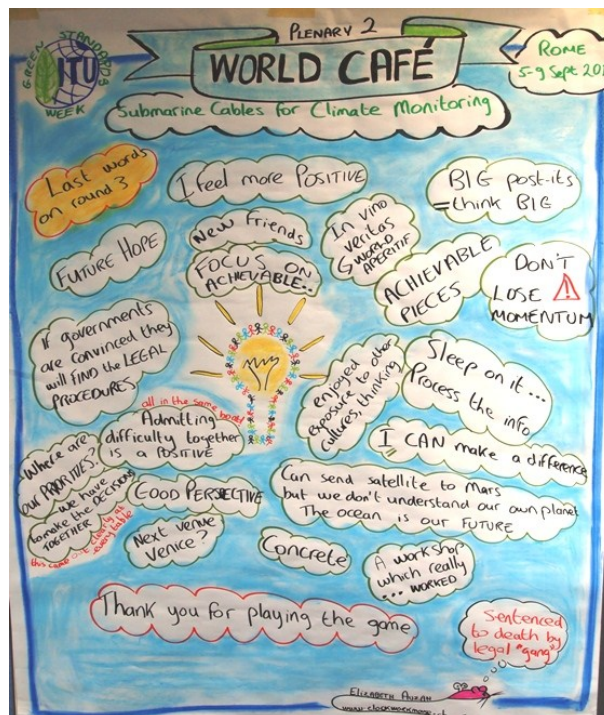 GREEN STANDARDS
WEEK
ITU
PLENARY 2
WORLD CAFÉ
Submarine Cables for Climate Monitoring
ROME
5-9 Sept
Last words
on round 3
I feel more POSITIVE
BIG post-its
=think BIG
FUTURE HOPE
New Friends
In vino
veritas
WORLD
APERITIF
FOCUS ON
ACHIEVABLE..
ACHIEVABLE
PIECES
DON'T
LOSE
MOMENTUM
If governments
are convinced they
will FIND the LEGAL
PROCEDURES.
enjoyed
exposure to other
cultures, thinking
Sleep on it...
Process the info
all in the same boat
Admitting
difficulty together
is a POSITIVE
I CAN make a difference
Where are
our PRIORITIES?
we have
to make the DECISIONS
TOGETHER
this came out clearly at
every table
GOOD PERSPECTIVE
Can send satellite to Mars
but we don't understand our own planet
The ocean is our FUTURE
Next venue
Venice?
Concrete
A workshop
which really
... WORKED
Thank you for playing the game
Sentenced
to death by
legal "gang"
ELIZABETH